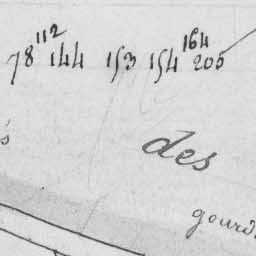 78 112 144 153 154 164 205
s
des
gourd